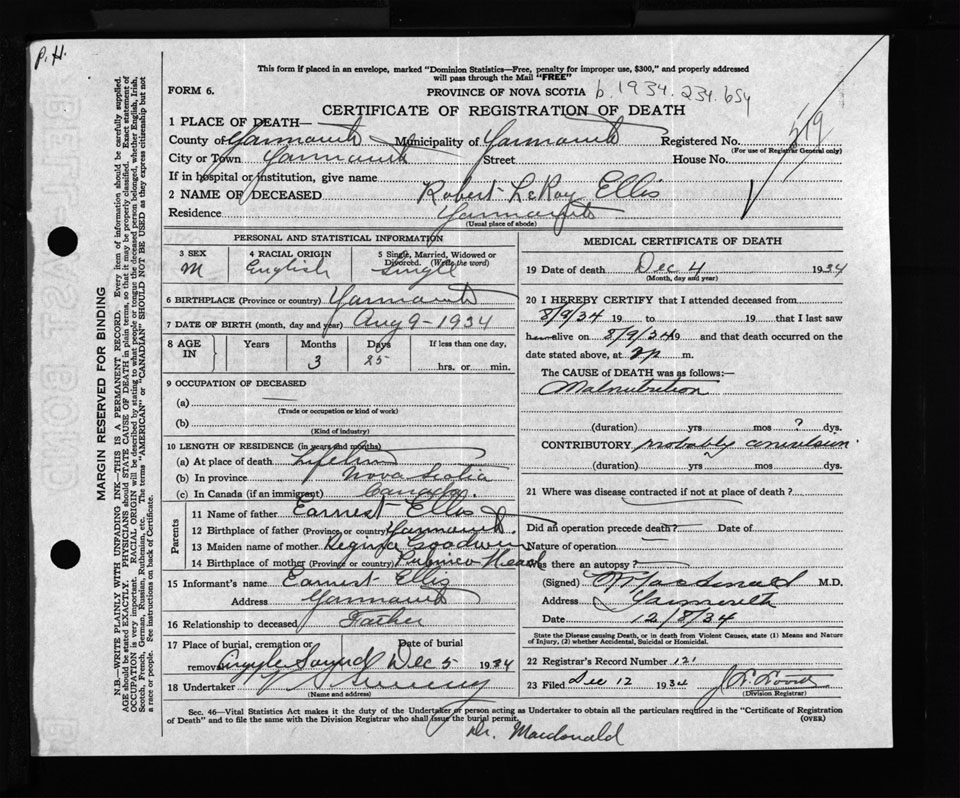 P. H.
This form if placed in an envelope, marked "Dominion Statistics—Free, penalty for improper use, $300," and properly addressed
will pass through the Mail "FREE"
FORM 6.
PROVINCE OF NOVA SCOTIA
b. 1934. 234. 654
CERTIFICATE OF REGISTRATION OF DEATH
1 PLACE OF DEATH—
County of Yarmouth Municipality of Yarmouth Registered No. 519
(For use of Registrar General only)
City or Town Yarmouth Street House No.
If in hospital or institution, give name
2 NAME OF DECEASED Robert LeRoy Ellis
Residence Yarmouth
(Usual place of abode)
PERSONAL AND STATISTICAL INFORMATION
3 SEX M
4 RACIAL ORIGIN English
5 Single, Married, Widowed or Divorced. (Write the word) Single
6 BIRTHPLACE (Province or country) Yarmouth
7 DATE OF BIRTH (month, day and year) Aug 9 - 1934
8 AGE IN Years Months 3 Days 25 If less than one day, hrs. or min.
9 OCCUPATION OF DECEASED
(a) —
(Trade or occupation or kind of work)
(b)
(Kind of industry)
10 LENGTH OF RESIDENCE (in years and months)
(a) At place of death Lifetime
(b) In province Nova Scotia
(c) In Canada (if an immigrant) Canada.
Parents
11 Name of father Earnest Ellis
12 Birthplace of father (Province or country) Yarmouth.
13 Maiden name of mother Regina Goodwin
14 Birthplace of mother (Province or country) Pubnico Head
15 Informant's name Earnest Ellis
Address Yarmouth
16 Relationship to deceased Father
17 Place of burial, cremation or removal Argyle Sound Date of burial Dec 5 1934
18 Undertaker V S Sweeny
(Name and address)
MEDICAL CERTIFICATE OF DEATH
19 Date of death Dec 4 1934
(Month, day and year)
20 I HEREBY CERTIFY that I attended deceased from
8/9/34 19 to 19 that I last saw
h alive on 8/9/34 19 and that death occurred on the
date stated above, at 2 p m.
The CAUSE OF DEATH was as follows:—
Malnutrition
(duration) yrs mos ? dys.
CONTRIBUTORY probably convulsion
(duration) yrs mos dys.
21 Where was disease contracted if not at place of death?
Did an operation precede death? — Date of
Nature of operation —
Was there an autopsy?
(Signed) MacDonald M.D.
Address Yarmouth
Date 12/8/34
State the Disease causing Death, or in death from Violent Causes, state (1) Means and Nature
of Injury, (2) whether Accidental, Suicidal or Homicidal.
22 Registrar's Record Number 121
23 Filed Dec 12 1934
(Division Registrar)
Sec. 46—Vital Statistics Act makes it the duty of the Undertaker or person acting as Undertaker to obtain all the particulars required in the "Certificate of Registration
of Death" and to file the same with the Division Registrar who shall issue the burial permit. (OVER)
Dr. Macdonald
MARGIN RESERVED FOR BINDING
N.B.—WRITE PLAINLY WITH UNFADING INK—THIS IS A PERMANENT RECORD. Every item of information should be carefully supplied.
AGE should be stated EXACTLY. PHYSICIANS should STATE CAUSE OF DEATH in plain terms, so that it may be properly classified. Exact statement of
OCCUPATION is very important. RACIAL ORIGIN will be described by stating to what people or tongue the deceased person belonged, whether English, Irish,
Scotch, French, German, Russian, Ruthenian, etc. The terms "AMERICAN" or "CANADIAN" SHOULD NOT BE USED as they express citizenship but not
a race or people. See instructions on back of Certificate.